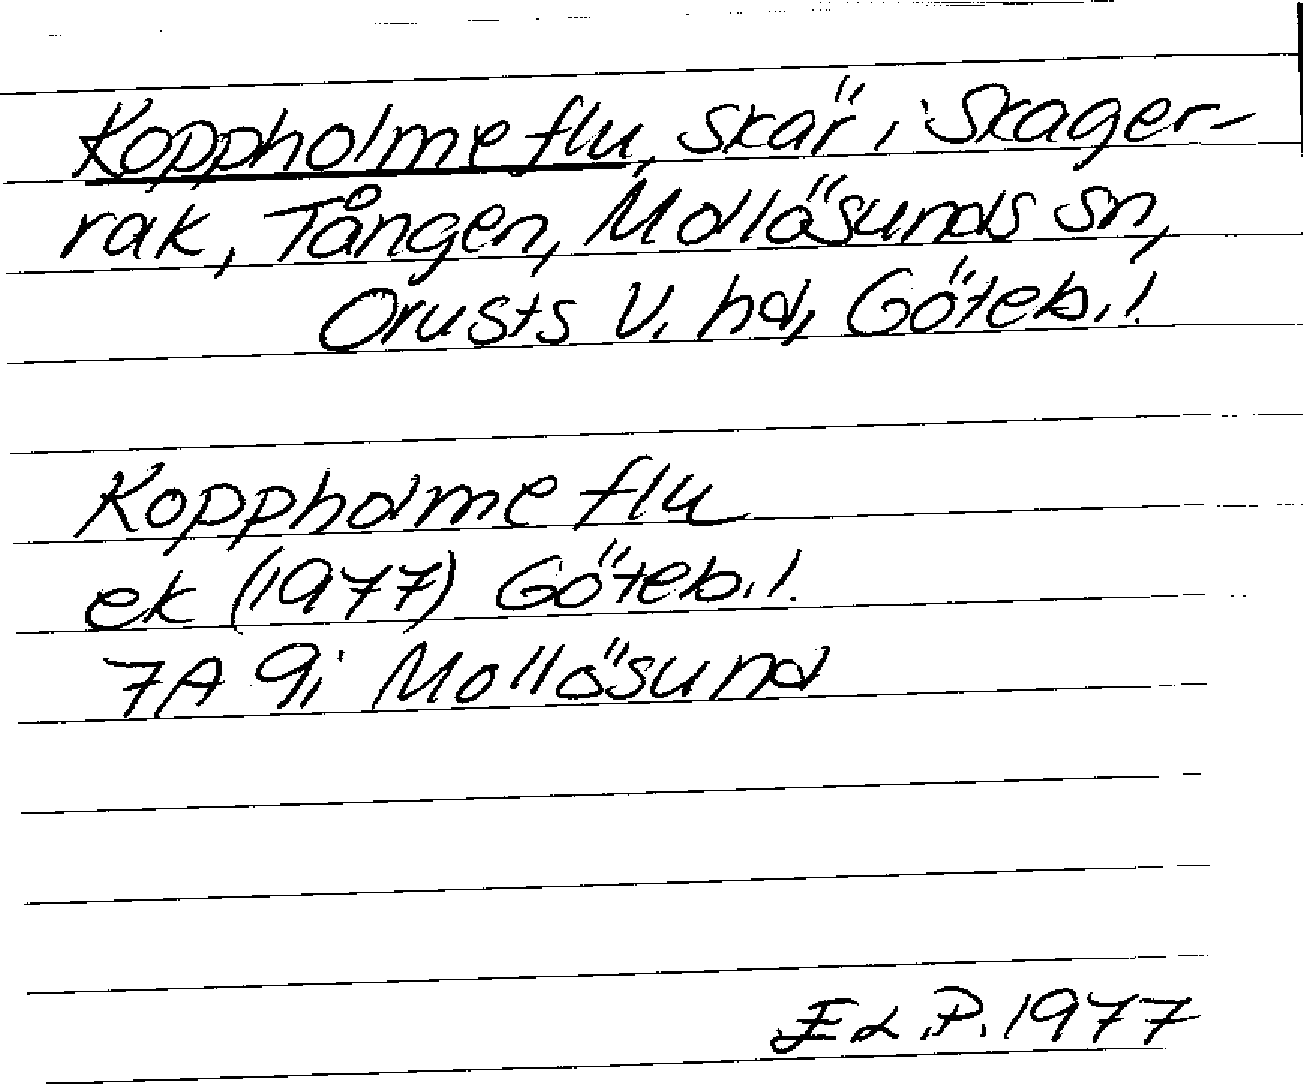 Koppholme flu, skär i Skager-
rak, Tången, Mollösunds sn,
Orusts V. hd, Göteb. l.
Koppholme flu
ek (1977) Göteb. l.
7A 9i Mollösund
P. 1977